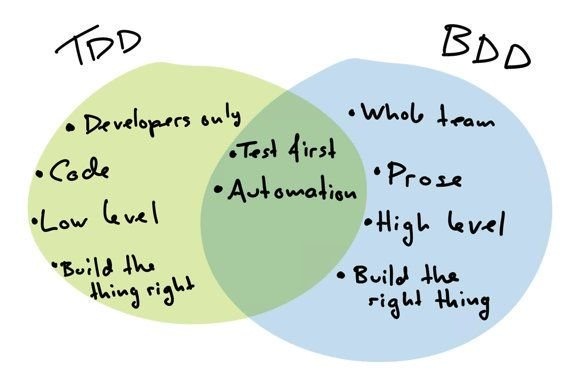 TDD
BDD
• Developers only
• Code
• Low level
• Build the
thing right
• Test first
• Automation
• Whole team
• Prose
• High level
• Build the
right thing